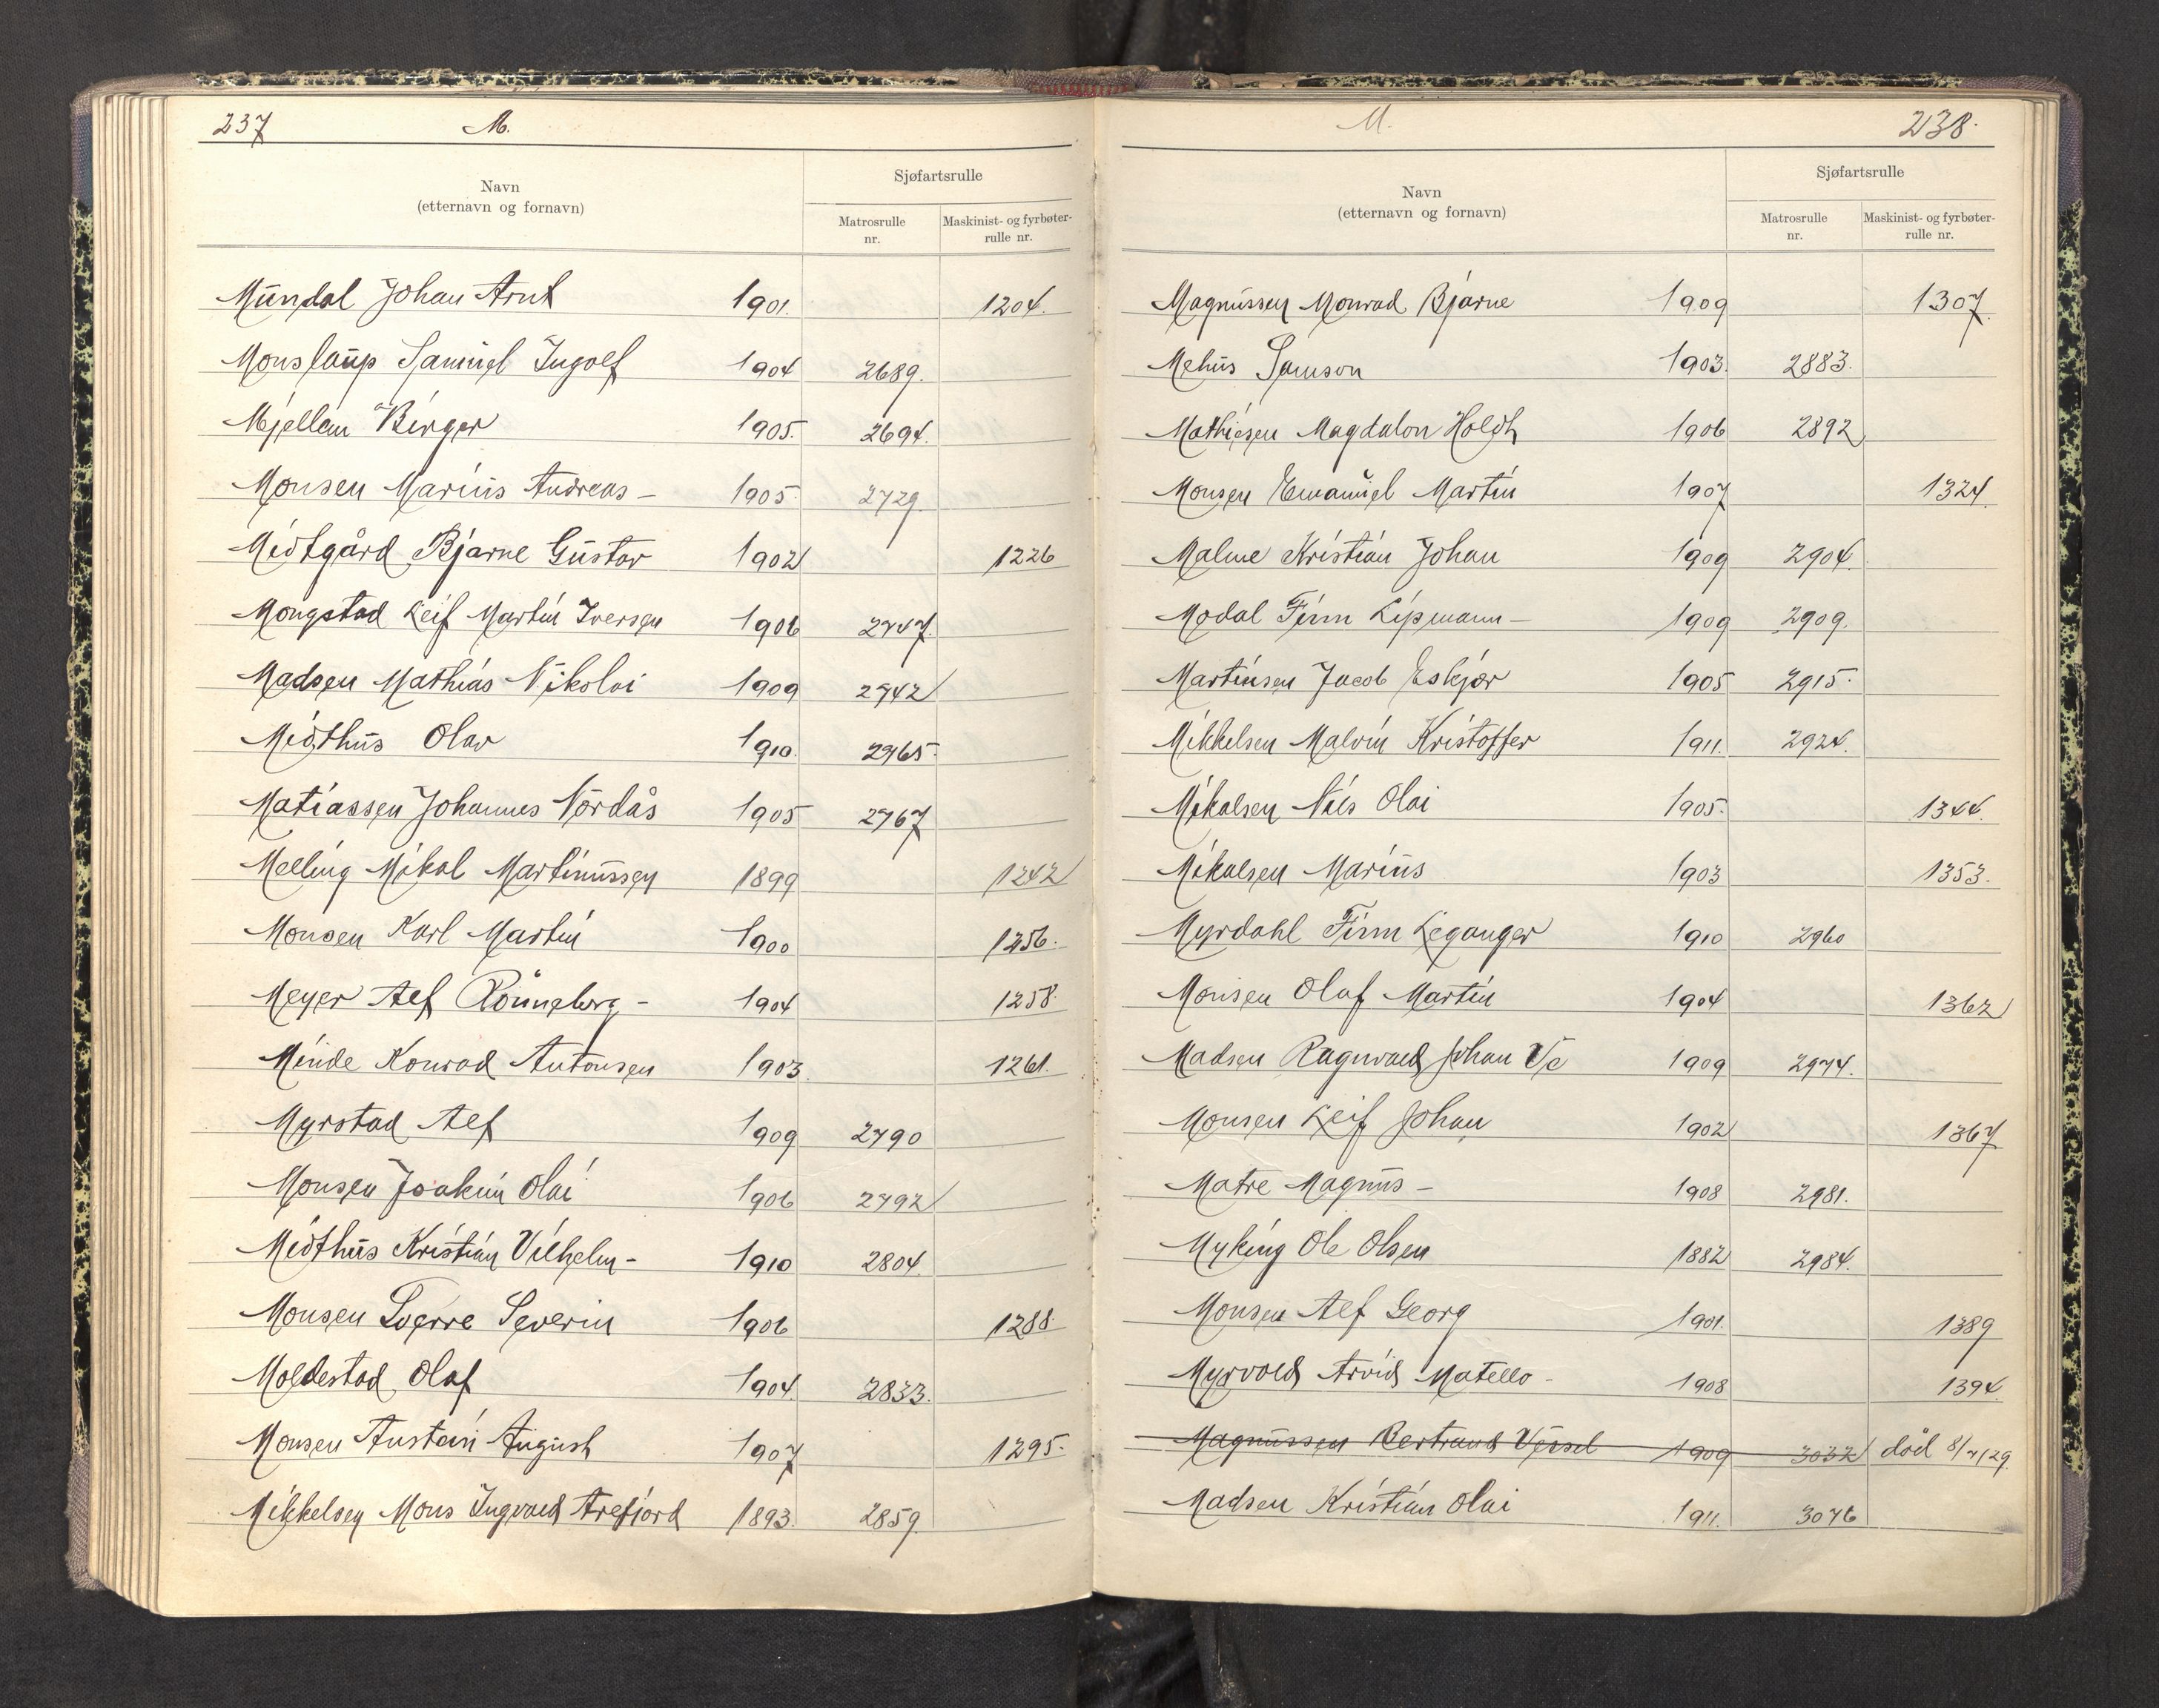 237 M.
Navn
(etternavn og fornavn)
Sjøfartsrulle
Matrosrulle
nr.
Maskinist- og fyrbøter-
rulle nr.
Mundal Johan Arnt 1901. 1204.
Monslaup Samuel Ingolf 1904 2689.
Mjellem Birger 1905. 2694.
Monsen Marius Andreas - 1905 2729.
Midtgård Bjarne Gustav 1902 1226
Mongstad Leif Martin Iversen 1906 2747.
Madsen Mathias Nikolai 1909 2742
Midthus Olav 1910. 2765.
Matiassen Johannes Nordås 1905 2767
Melling Mikal Martinussen 1899 1242
Monsen Karl Martin 1900 1256.
Meyer Alf Rönneberg - 1904 1258.
Minde Konrad Antonsen 1903. 1261.
Myrstad Alf 1909 2790
Monsen Joakim Olai 1906 2792
Midthus Kristian Vilhelm - 1910 2804.
Monsen Sverre Severin 1906 1288.
Moldestad Olaf 1904. 2833.
Monsen Austein August 1907 1295.
Mikkelsen Mons Ingvald Arefjord 1893. 2859.
M. 238.
Navn
(etternavn og fornavn)
Sjøfartsrulle
Matrosrulle
nr.
Maskinist- og fyrbøter-
rulle nr.
Magnussen Monrad Bjarne 1909 1307.
Mehus Samson 1903. 2883.
Mathiesen Magdalon Holdh 1906 2892
Monsen Emanuel Martin 1907 1324.
Malme Kristian Johan 1909 2904.
Modal Finn Lipmann - 1909 2909.
Martinsen Jacob Eskjær 1905 2915.
Mikkelsen Malvin Kristoffer 1911. 2924.
Mikalsen Nils Olai 1905. 1344.
Mikalsen Marius 1903 1353.
Myrdahl Finn Leganger 1910 2960
Monsen Olaf Martin 1904 1362
Madsen Ragnvald Johan 1909 2974.
Monsen Leif Johan 1902 1367
Matre Magnus - 1908 2981.
Myking Ole Olsen 1882 2984.
Monsen Alf Georg 1901. 1389
Myrvold Arvid Matello - 1908 1394.
Magnussen Bertrand Vessel 1909 3032 död 8/7/29.
Madsen Kristian Olai 1911. 3076